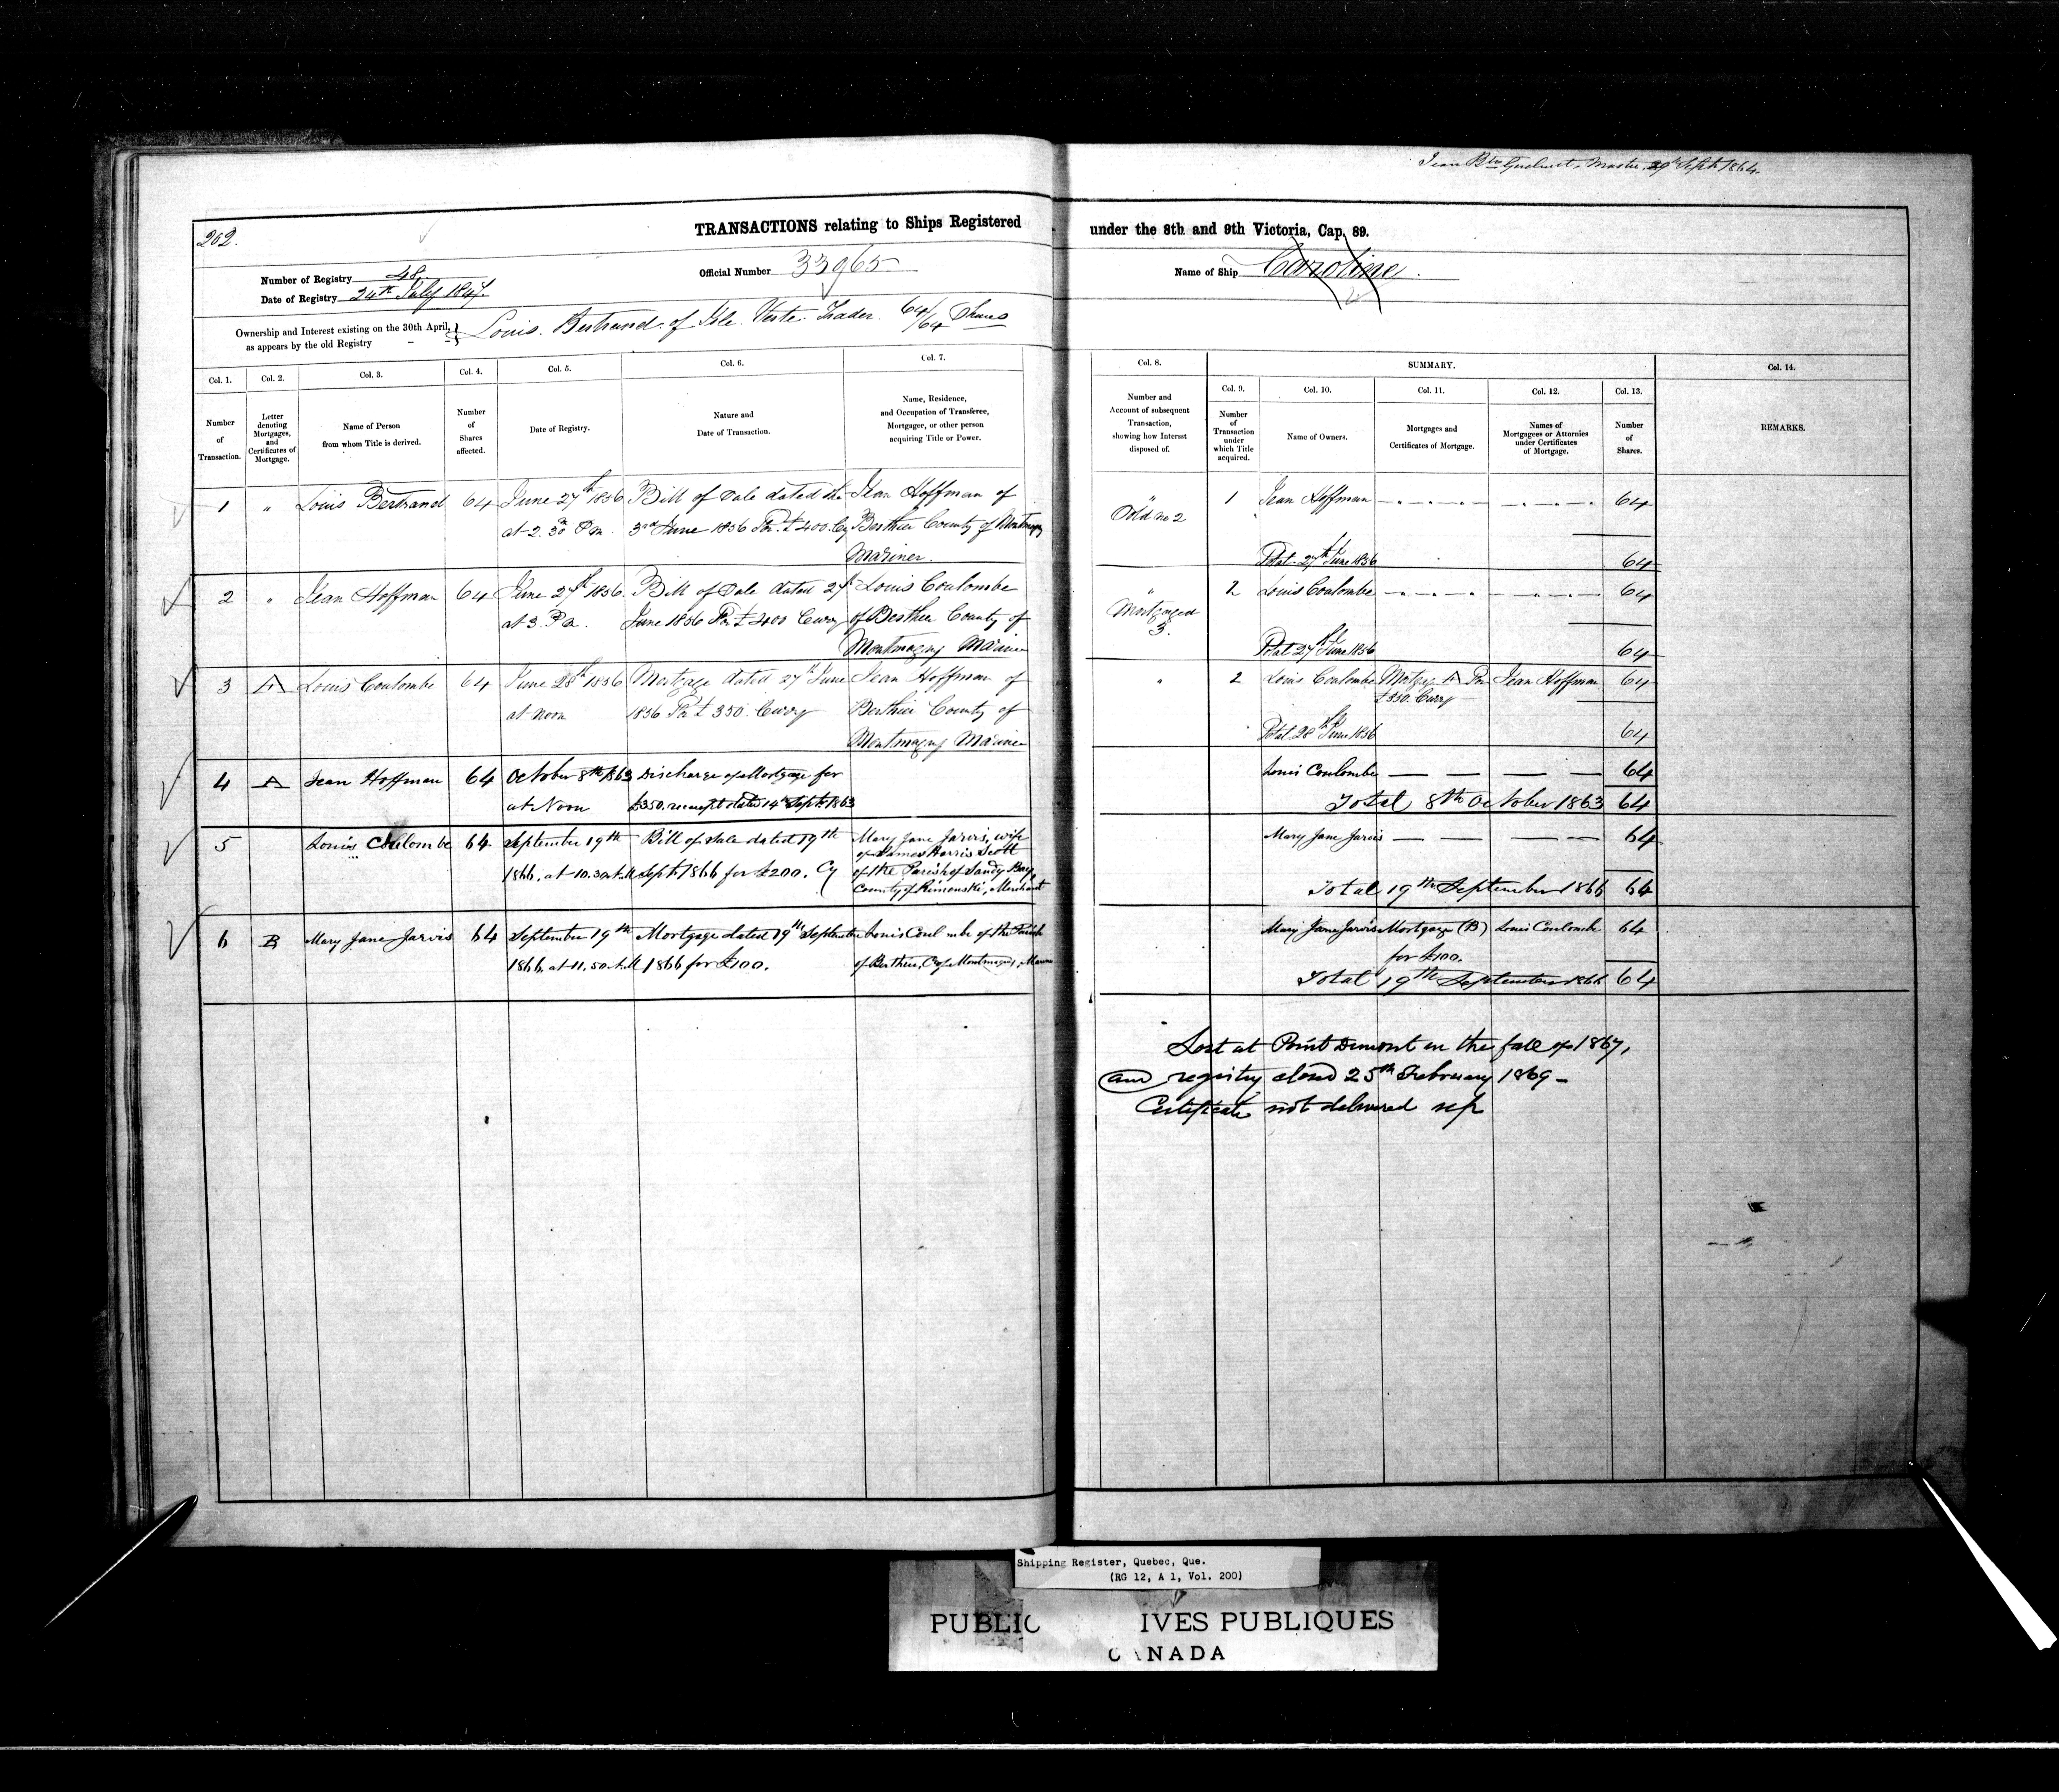 Jean Bte , Master, 29th Sept 1864.
202.
TRANSACTIONS relating to Ships Registered under the 8th and 9th Victoria, Cap. 89.
Number of Registry 48
Date of Registry 24th July 1847.
Official Number 33965
Name of Ship Caroline.
Ownership and Interest existing on the 30th April,
as appears by the old Registry
Louis Bertrand of Isle Verte Trader 64/64 Shares
Col. 1.
Number
of
Transaction.
Col. 2.
Letter
denoting
Mortgages,
and
Certificates of
Mortgage.
Col. 3.
Name of Person
from whom Title is derived.
Col. 4.
Number
of
Shares
affected.
Col. 5.
Date of Registry.
Col. 6.
Nature and
Date of Transaction.
Col. 7.
Name, Residence,
and Occupation of Transferee,
Mortgager, or other person
acquiring Title or Power.
Col. 8.
Number and
Account of subsequent
Transaction,
showing how Interest
disposed of.
SUMMARY.
Col. 9.
Number
of
Transaction
under
which Title
acquired.
Col. 10.
Name of Owners.
Col. 11.
Mortgages and
Certificates of Mortgage.
Col. 12.
Names of
Mortgagees or Attornies
under Certificates
of Mortgage.
Col. 13.
Number
of
Shares.
Col. 14.
REMARKS.
1 " Louis Bertrand 64 June 27th 1856 Bill of Sale dated the Jean Hoffman of " 1 Jean Hoffman 64
at 2.30 Pm 3rd June 1856 for £400 Cy Berthier County of Montmagny Sold no 2
Mariner. Total 27th June 1856 64
2 " Jean Hoffman 64 June 27th 1856 Bill of Sale dated 27th Louis Coulombe " 2 Louis Coulombe 64
at 3 P.m. June 1856 for £400 Curcy of Berthier County of Mortgaged
3.
Montmagny Mariner Total 27th June 1856 64
3 A Louis Coulombe 64 June 28th 1856 Mortgage dated 27th June Jean Hoffman of " 2 Louis Coulombe Mortge A for Jean Hoffman 64
at noon 1856 for £350 Curcy Berthier County of £350 Curcy
Montmagny Mariner Total 28th June 1856 64
4 A Jean Hoffman 64 October 8th 1863 Discharge of Mortgage for Louis Coulombe 64
at Noon £350, receipt dated 14th Sept 1863 Total 8th October 1863 64
5 Louis Coulombe 64 September 19th Bill of Sale dated 19th Mary Jane Jarvis, wife Mary Jane Jarvis 64
of James Harris Scott
1866, at 10.30 A.M Sept 1866 for £200. Cy of the Parish of Sandy Bay,
County of Rimouski, Merchant Total 19th September 1866 64
6 B Mary Jane Jarvis 64 September 19th Mortgage dated 19th September Louis Coulombe of the Parish Mary Jane Jarvis Mortgage (B) Louis Coulombe 64
1866, at 11.50 A.M 1866 for £100. of Berthier, Cy of Montmagny, Mariner for £100.
Total 19th September 1866 64
Lost at Point Dumont in the fall of 1867,
and registry closed 25th February 1869 -
Certificate not delivered up
Shipping Register, Quebec, Que.
(RG 12, A 1, Vol. 200)
PUBLIC IVES PUBLIQUES
CANADA